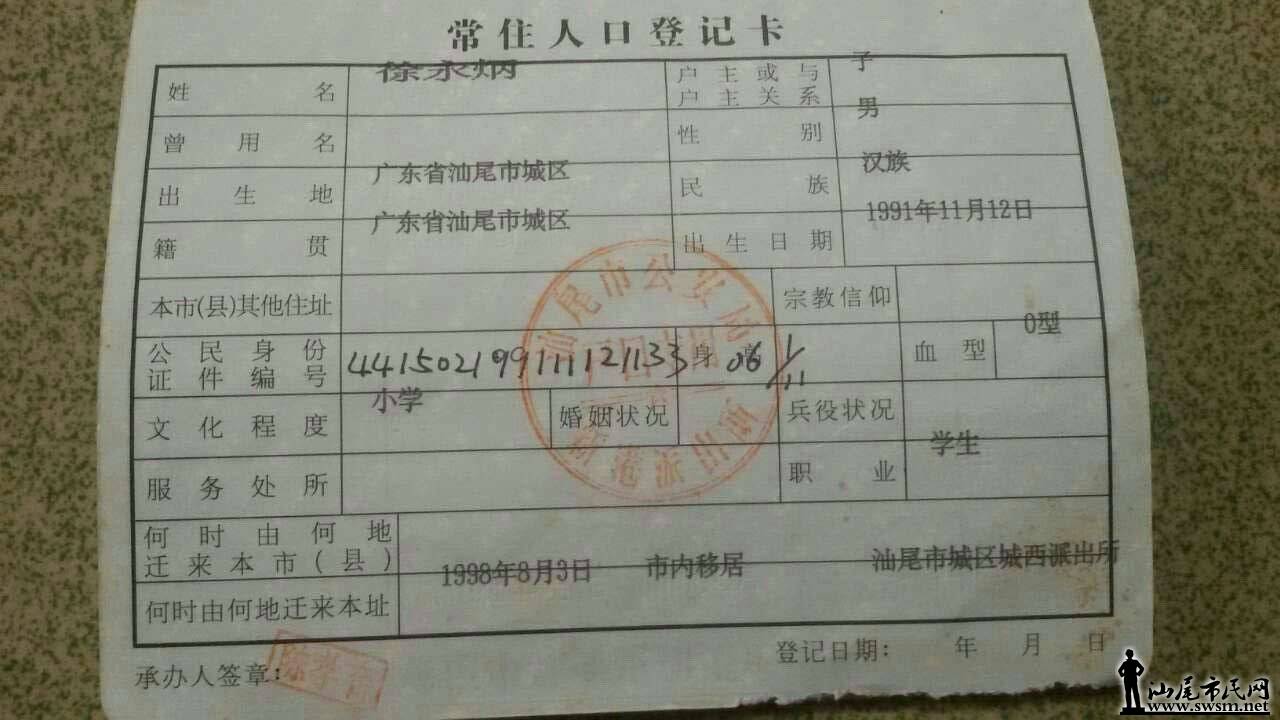 常住人口登记卡
姓名 徐永炳 户主或与户主关系 子
曾用名 性别 男
出生地 广东省汕尾市城区 民族 汉族
籍贯 广东省汕尾市城区 出生日期 1991年11月12日
本市(县)其他住址 宗教信仰
公民身份证件编号 441502199111121133 身高 06 1/11 血型 O型
文化程度 小学 婚姻状况 兵役状况
服务处所 职业 学生
何时由何地迁来本市(县)
何时由何地迁来本址 1998年8月3日 市内移居 汕尾市城区城西派出所
承办人签章: 登记日期: 年 月 日
汕尾市公安局
派出所
汕尾市民网
www.swsm.net